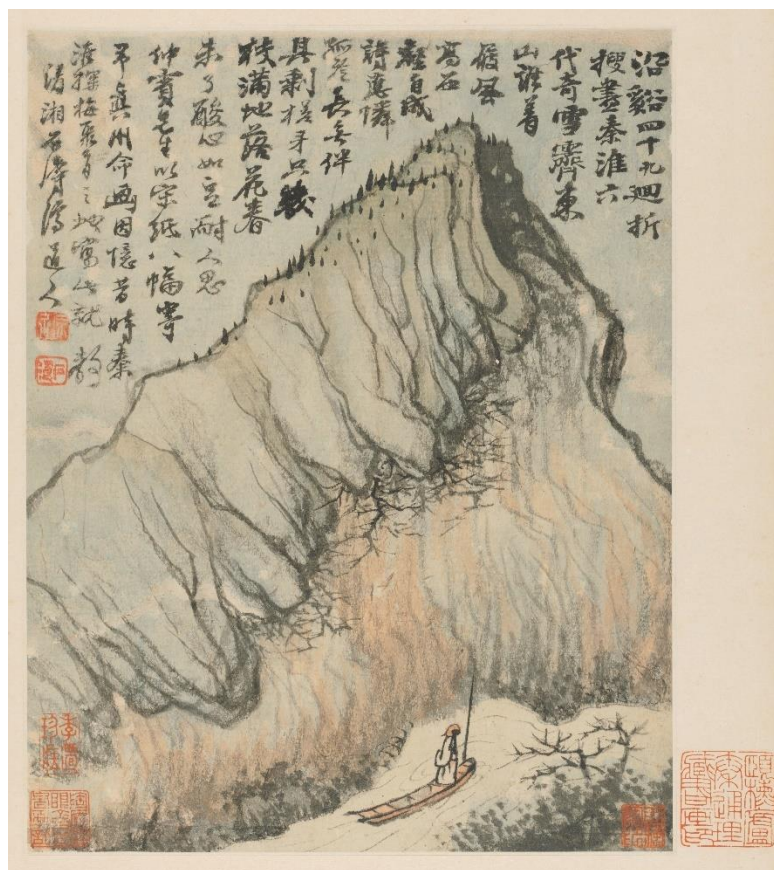 沿谿四十九廻折
搜盡秦淮六
代奇雪霽東
山誰着
屐風
高
壑自成
詩應憐
孤長無伴
具剩槎牙只幾
枝滿地落花春
未了酸心如豆耐人思
仲賓先生以宋紙八幅寄
真州命画因憶昔時秦
淮探梅之地寓此就教
清湘石濤濟道人